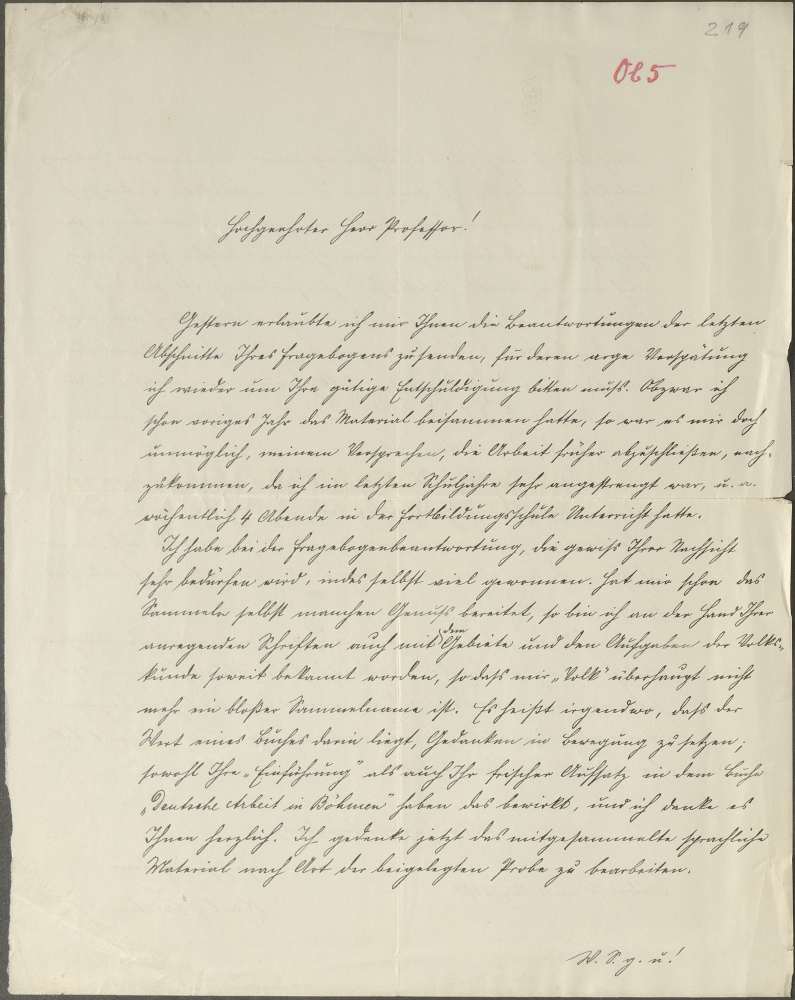 219
Ob 5
Hochgeehrter Herr Professor!
Gestern erlaubte ich mir Ihnen die Beantwortungen der letzten
Abschnitte Ihres Fragebogens zu senden, für deren arge Verspätung
ich wieder um Ihre gütige Entschuldigung bitten muss. Obzwar ich
schon voriges Jahr das Material beisammen hatte, so war es mir doch
unmöglich, meinem Versprechen, die Arbeit früher abzuschließen, nach-
zukommen, da ich im letzten Schuljahre sehr angestrengt war, u. a.
wöchentlich 4 Abende in der Fortbildungsschule Unterricht hatte.
Ich habe bei der Fragebogenbeantwortung, die gewiss Ihrer Nachsicht
sehr bedürfen wird, indes selbst viel gewonnen. Hat mir schon das
Sammeln selbst manchen Genuss bereitet, so bin ich an der Hand Ihrer
anregenden Schriften auch mit dem Gebiete und den Aufgaben der Volks-
kunde soweit bekannt worden, so dass mir „Volk“ überhaupt nicht
mehr ein bloßer Sammelname ist. Es heißt irgendwo, dass der
Wert eines Buches darin liegt, Gedanken in Bewegung zu setzen;
sowohl Ihre „Einführung“ als auch Ihr frischer Aufsatz in dem Buche
„Deutsche Arbeit in Böhmen“ haben das bewirkt, und ich danke es
Ihnen herzlich. Ich gedenke jetzt das mitgesammelte sprachliche
Material nach Art der beigelegten Probe zu bearbeiten.
W. S. g. u.!